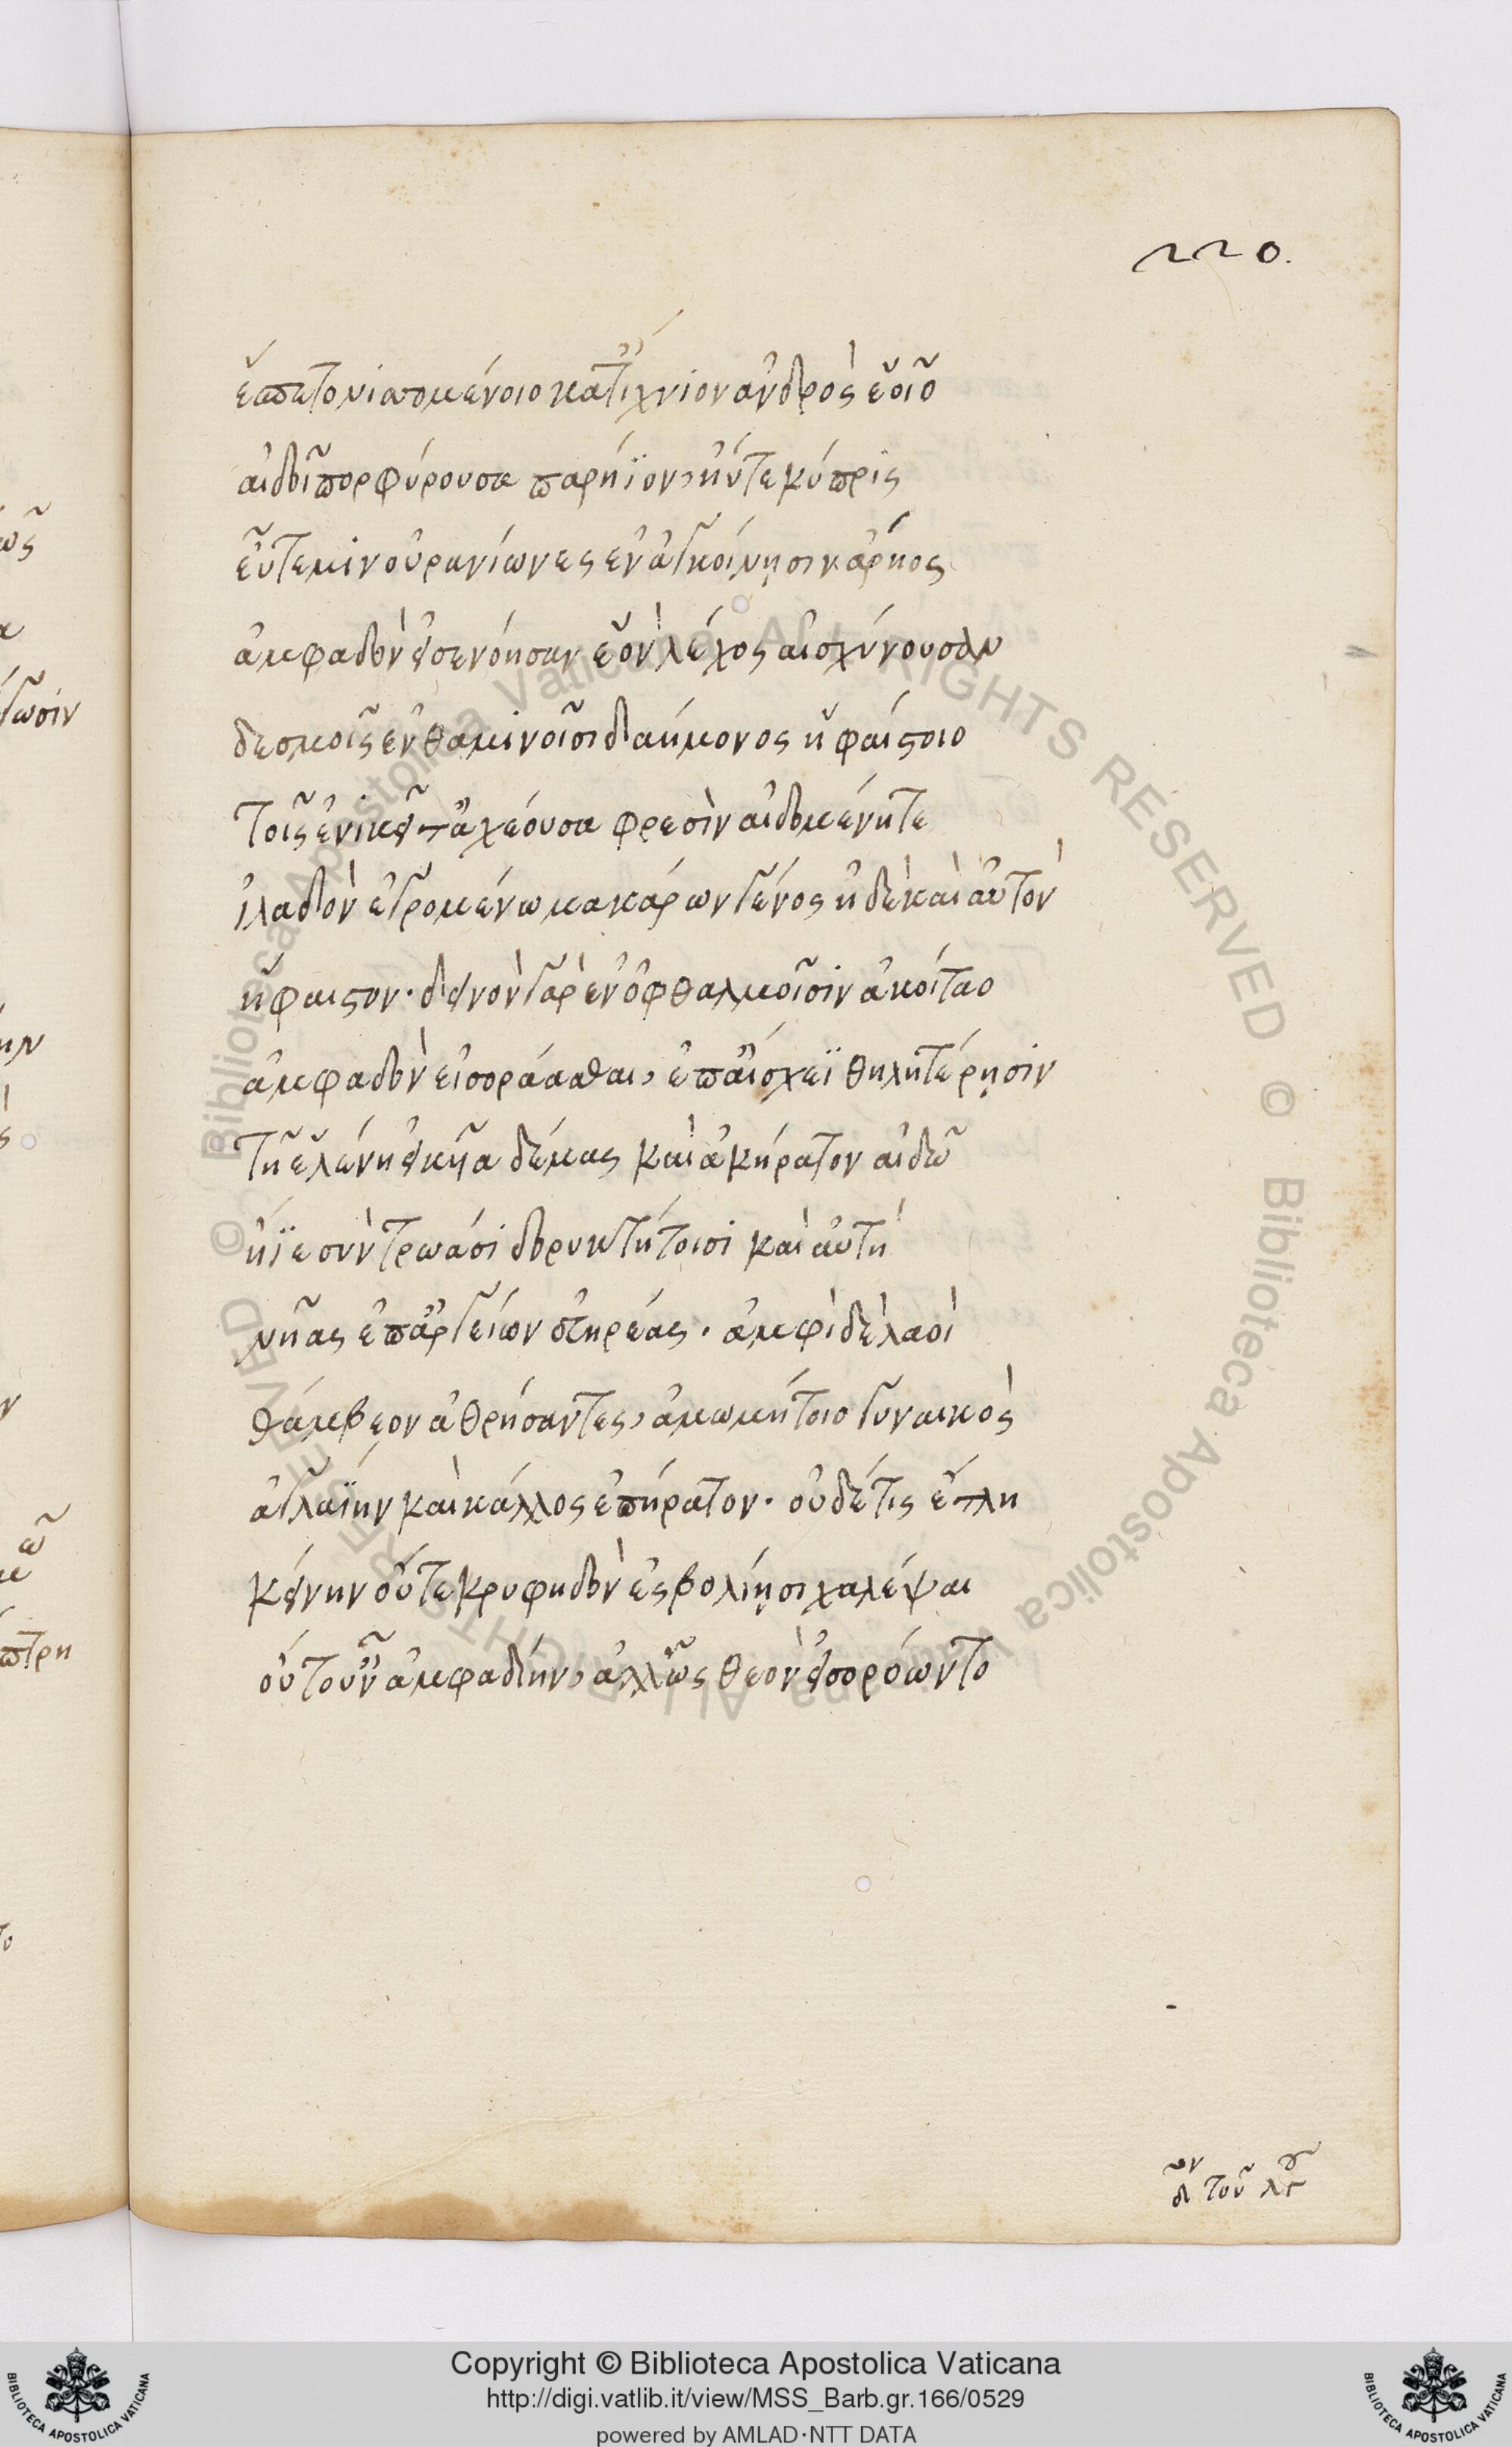 220.
ἕσπετο νισσομένοιο κατίχνιον ἀνδρὸς ἐοῖο
αἰδοῖ πορφύρουσα παρήϊον, ἠΰτε κύπρις
εὖτέ μιν οὐρανίωνες ἐν ἀγκοίνῃσιν ἄρηος
ἀμφαδὸν εἰσενόησαν ἐὸν λέχος αἰσχύνουσαν
δεσμοῖς ἐν θαμινοῖσι δαήμονος ἡφαίστοιο
τοῖς ἐνίκειτ' ἀχέουσα φρεσὶν αἰδομένη τε
ἰλαδὸν ἀγρομένω μακάρων γένος ἠδὲ καὶ αὐτὸν
ἥφαιστον· δεινὸν γὰρ ἐν ὀφθαλμοῖσιν ἀκοίταο
ἀμφαδὸν εἰσοράασθαι, ἐπ' αἴσχεϊ θηλητέρῃσιν
τῇ ἑλένη εἰκυῖα δέμας καὶ ἀκήρατον αἰδῶ
ἤϊε σὺν τρωάσι δορυκτήτοισι καὶ αὐτὴ
νῆας ἐπ' ἀργείων εὐήρεας· ἀμφὶ δὲ λαοὶ
θάμβεον ἀθρήσαντες, ἀμωμήτοιο γυναικὸς
ἀγλαΐην καὶ κάλλος ἐπήρατον· οὐδέ τις ἔτλη
κείνην οὔτε κρυφηδὸν ἐσβολίῃσι χαλέψαι
οὔτ' οὖν ἀμφαδίην, ἀλλ' ὡς θεὸν εἰσορόωντο
Copyright © Biblioteca Apostolica Vaticana
http://digi.vatlib.it/view/MSS_Barb.gr.166/0529
powered by AMLAD·NTT DATA